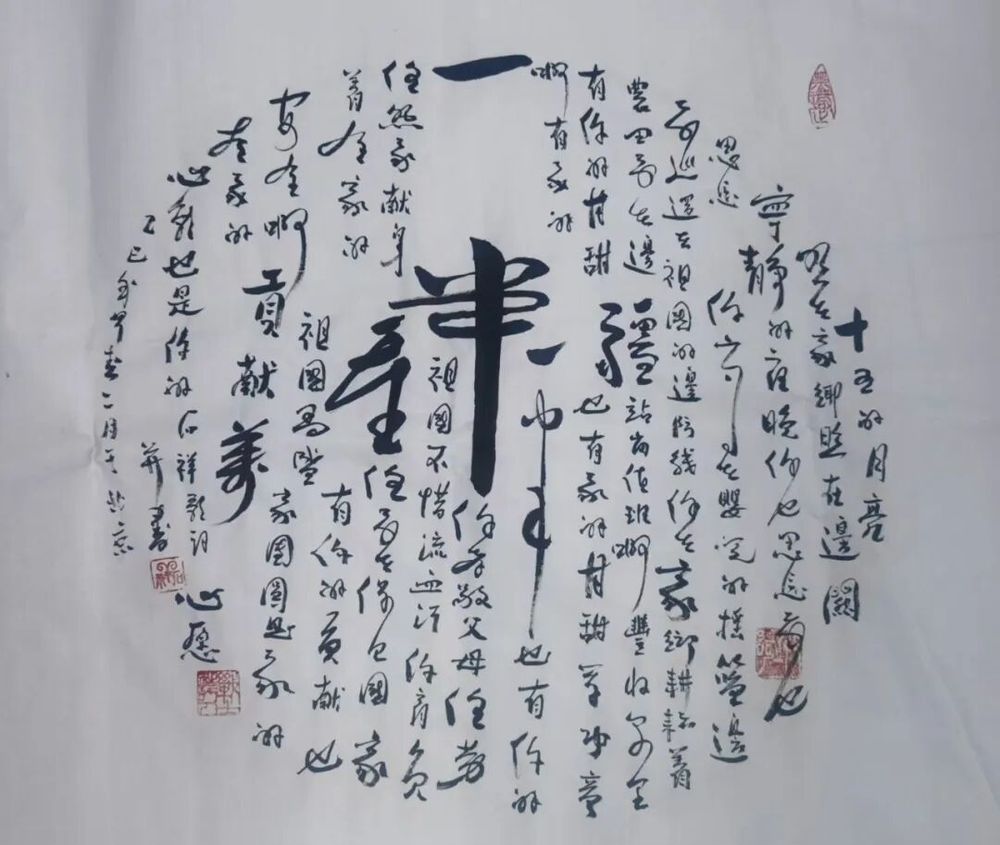 十五的月亮
照在家鄉照在邊關
寧静的夜晚你也思念我也
思念
你守在嬰兒的摇籃邊
我巡邏在祖國的邊防綫你在家鄉耕耘着
農田我在邊疆站崗值班啊豐收果里
有你的甘甜也有我的甘甜軍功章
啊有我的
一半也有你的
一半
你孝敬父母任勞
任怨我献身祖國不惜流血汗你肩負
着全家的重任我在保卫國家
安全啊祖國昌盛有你的貢献也
有我的貢献萬家團圓是我的
心願也是你的
心愿
石祥歌詞
二月于北京
并書